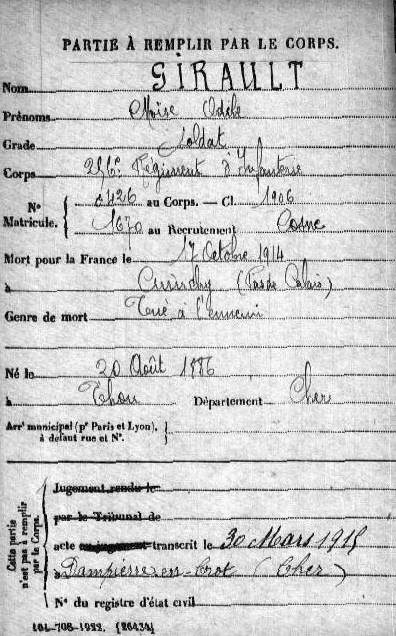 PARTIE À REMPLIR PAR LE CORPS.
Nom GIRAULT
Prénoms Moïse Odile
Grade Soldat
Corps 256e Régiment d'Infanterie
N° Matricule. { 0426 au Corps. — Cl. 1906
1670 au Recrutement Cosne
Mort pour la France le 17 Octobre 1914
à Cuinchy (Pas de Calais)
Genre de mort Tué à l'ennemi
Né le 20 Août 1886
à Thou Département Cher
Arrt municipal (pr Paris et Lyon), à défaut rue et N°. {
Cette partie n'est pas à remplir par le Corps.
Jugement rendu le
par le Tribunal de
acte ou jugement transcrit le 30 Mars 1915
à Dampierre-en-Crot (Cher)
N° du registre d'état civil
101-708-1922. [26434]